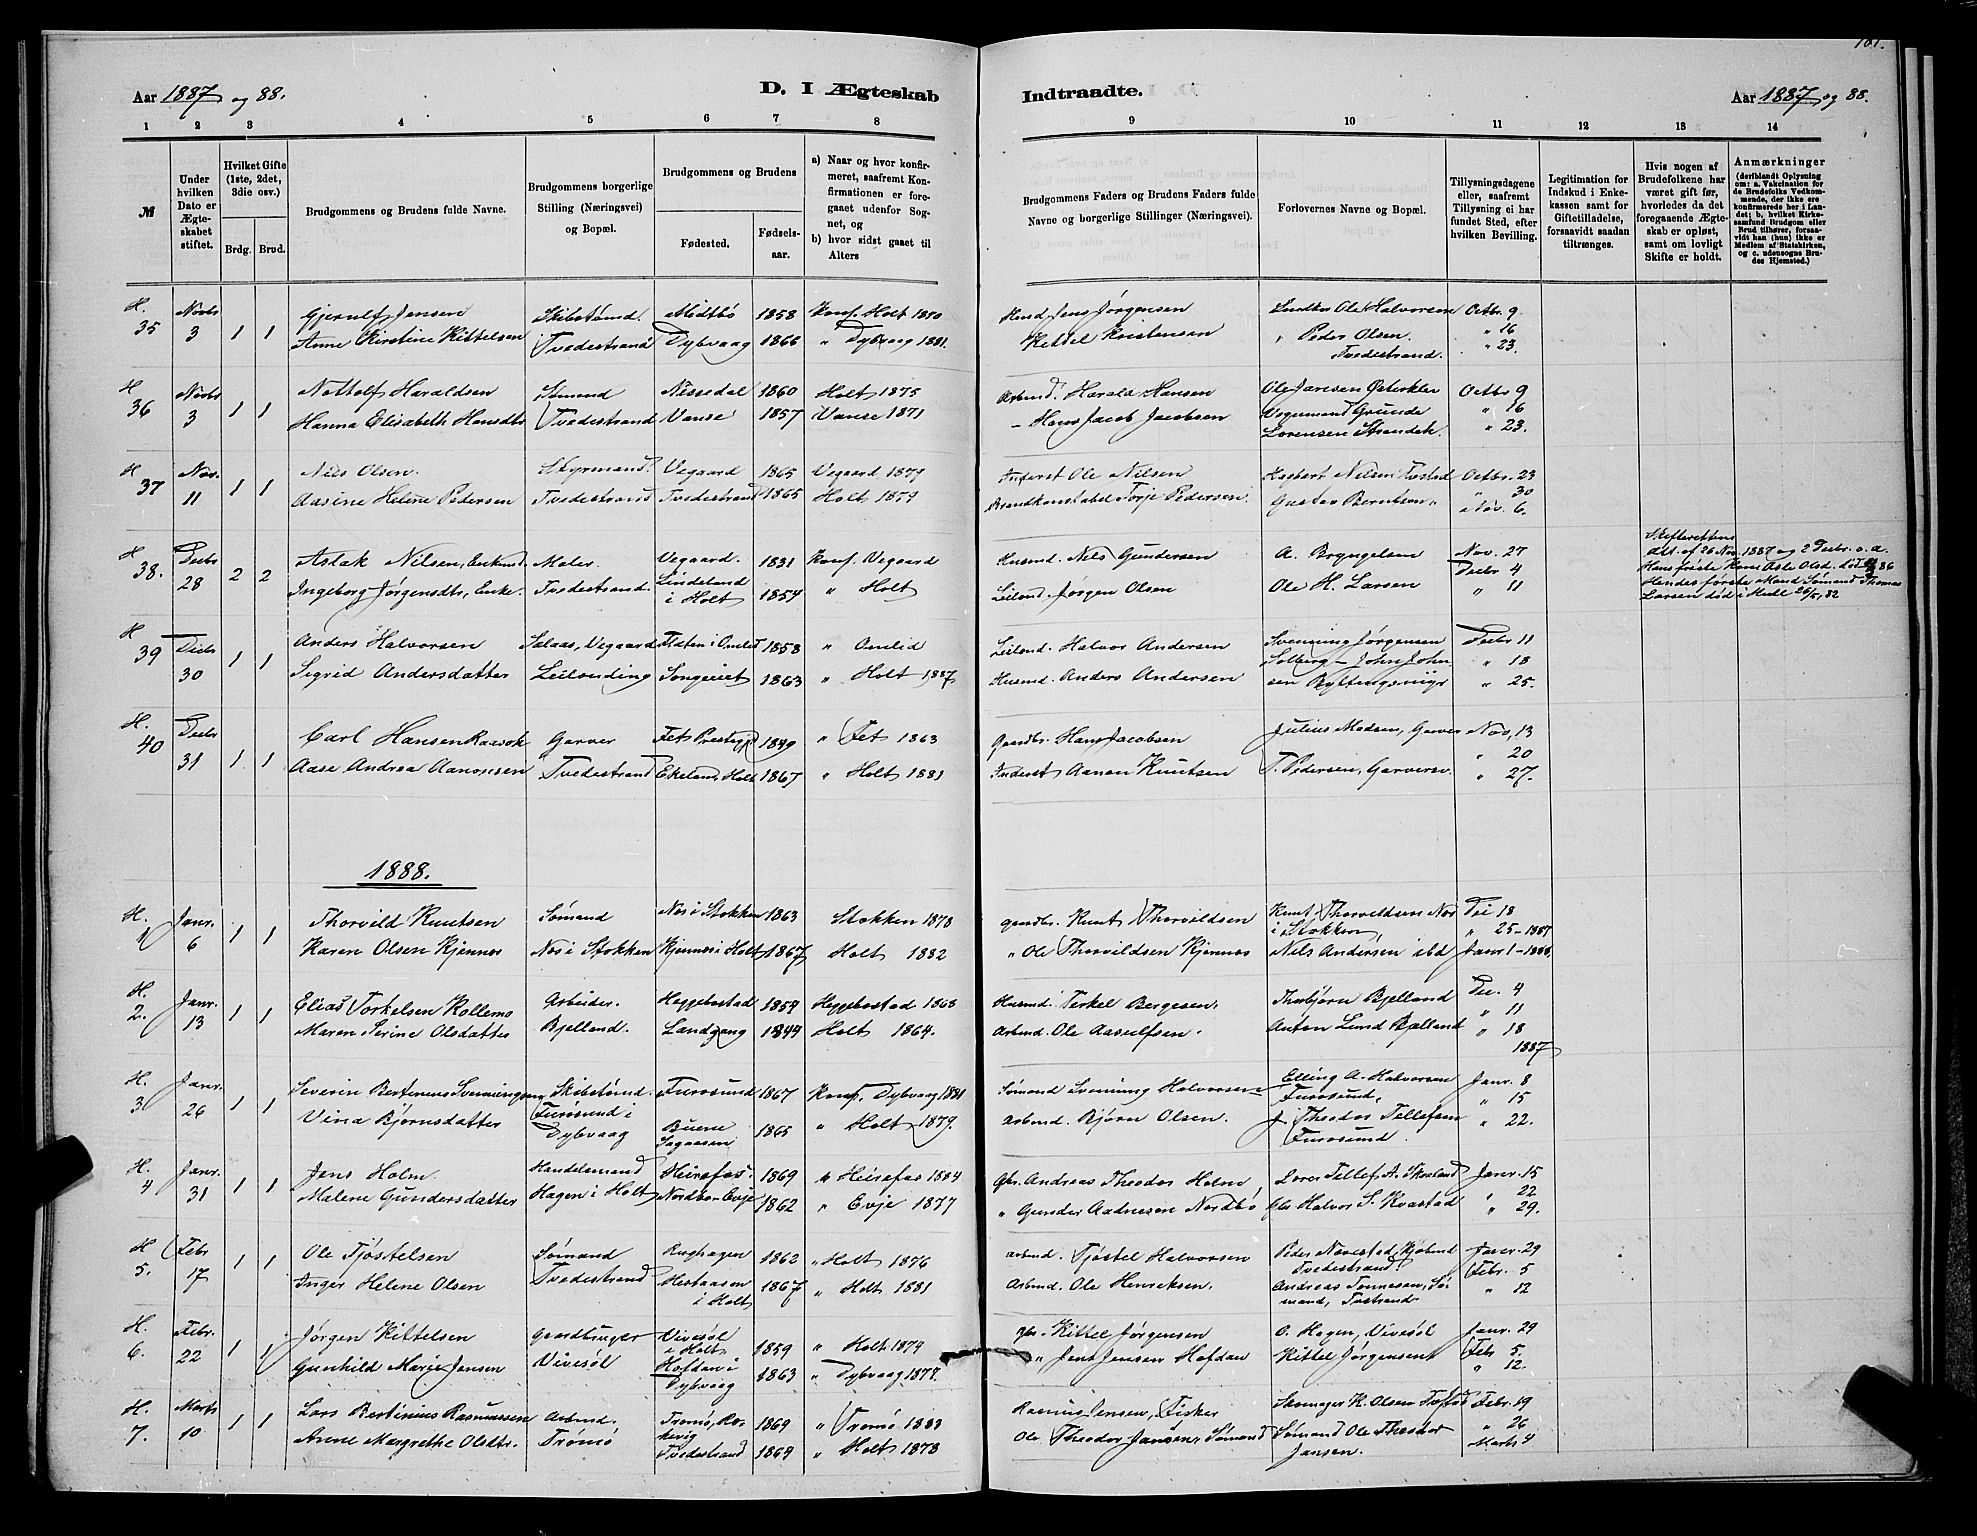 181.
Aar 1887 og 88. D. I Ægteskab
Indtraadte. Aar 1887 og 88.
1 2 3 4 5 6 7 8
9 10 11 12 13 14
№
Under hvilken Dato er Ægteskabet stiftet.
Hvilket Gifte (1ste, 2det, 3die osv.)
Brdg. Brud.
Brudgommens og Brudens fulde Navne.
Brudgommens borgerlige Stilling (Næringsvei) og Bopæl.
Brudgommens og Brudens
Fødested. Fødsels-aar.
a) Naar og hvor konfirmeret, saafremt Konfirmationen er foregaaet udenfor Sognet, og
b) hvor sidst gaaet til Alters
Brudgommens Faders og Brudens Faders fulde Navne og borgerlige Stillinger (Næringsvei).
Forlovernes Navne og Bopæl.
Tillysningsdagene eller, saafremt Tillysning ei har fundet Sted, efter hvilken Bevilling.
Legitimation for Indskud i Enkekassen samt for Giftetilladelse, forsaavidt saadan tiltrænges.
Hvis nogen af Brudefolkene har været gift før, hvorledes da det foregaaende Ægteskab er opløst, samt om lovligt Skifte er holdt.
Anmærkninger (deriblandt Oplysning om: a. Vakcination for de Brudefolks Vedkommende, der ikke ere konfirmerede her i Landet; b. hvilket Kirkesamfund Brudgom eller Brud tilhører, forsaavidt han (hun) ikke er Medlem af Statskirken, og c. udensogns Brudes Hjemsted.)
H. 35 Novbr 3 1 1 Gjerulf Jensen Skibstømd. Midtbø 1858 Konf. Holt 1880 Jens Jørgensen Ole Halvorsen Octbr. 9
Anne Kirstine Kittelsen Tvedestrand Dybvaag 1866 " Dybvaag 1881. Kittel Kristensen " Peder Olsen " 16
Tvedestrand. " 23.
H 36 Novbr 3 1 1 Nottolf Haraldsen Sømand Nissedal 1860 Holt 1875 Arbmd. Harald Hansen Ole Jansen Octbr 9
Hanna Elisabeth Hansdtr Tvedestrand Vanse 1857 Vanse 1871 — Hans Jacob Jacobsen Vognmand Grunde " 16
Lorensen " 23.
H 37 Nov. 11 1 1 Niels Olsen. Styrmand. Vegaard 1865 Vegaard 1879 Inderst Ole Nilsen Nilsen Octbr. 23
Aasine Helene Pedersen Tvedestrand Tvedestrand 1865 Holt 1879 Brandkonstabel Torje Pedersen. Gustav Berntsen " " 30
Nov. 6.
H 38. Decbr 28 2 2 Aslak Nilsen, Enkemd. Maler Vegaard. 1831 Konf. Vegaard Husmd. Nils Gundersen A. Bryngelsen Nov. 27
Ingeborg Jørgensdtr, Enke. Tvedestrand. Lindeland i Holt 1854 " Holt Leilend. Jørgen Olsen Ole H. Larsen Decbr 4
" 11
Skifterettens
Att. af 26 Nov. 1887 og 2 Decbr. s. a.
Hans første Kone Asle Olsd. død 86
Hendes første Mand Sømand Thomas
Larsen død i Hull 26/5 82
H 39 Decbr 30 1 1 Anders Halvorsen Salaas, Vegaard 1858 " Omlid Leilend. Halvor Andersen Svenning Jørgensen Decbr 11
Sigrid Andersdatter Leilending Songeriet 1863 " Holt 1887 Husmd. Anders Andersen Solberg — John John " 18
sen " 25.
H. 40 Decbr 31 1 1 Carl Hansen Garver Fet Prestegjd 1849 " Fet 1863 Gaardbr. Hans Jacobsen Julius Madsen, Garver Nov. 13
" 20
Aase Andrea Aanonsen Tvedestrand Ekeland, Holt 1867 " Holt 1881 Inderst Aanon Knutsen T. Pedersen, Garversv. " 27.
1888.
H. 1 Janr. 6 1 1 Thorvild Knutsen Sømand Nes i Stokken 1863 Stokken 1878 gaardbr. Knut Thorvildsen Knut Thorvildsen Nes i Stokken Dec 18
" 25 - 1887
Karen Olsen Kjennes Nes i Stokken Kjennes i Holt 1867 Holt 1882 " Ole Thorvildsen Kjennes Nils Andersen ibd Janr 1 - 1888.
H. 2. Janr. 13 1 1 Elias Torkelsen Rollemo Arbeider. Heggebostad 1857 Heggebostad 1868 Husmd. Terkel Bergesen. Thorbjørn Bjelland Dec. 4
" 11
Maren Serine Olsdatter Bjelland. Landgang 1849 Holt 1864. Arbmd. Ole Aasulfsen. Anton Lund Bjelland " 18
1887
H. 3 Janr. 26 1 1 Severin Bertinius Svenningsen Skibstømd. Furøsund 1867 Konf. Dybvaag 1881 Sømand Svenning Halvorsen Elling A. Halvorsen Janr. 8
Furøsund i Furøsund. " 15
Vina Bjørnsdatter Dybvaag Buene Sagaasen 1865 " Holt 1879. Arbmd. Bjørn Olsen. J. Theodor Tellefsen " 22.
Furøsund.
H. 4 Janr. 31 1 1 Jens Holm Handelsmand Heirefos. 1869 " Heirefos 1884 Gbr. Andreas Theodor Holm Tellef A. Skosland Janr. 15
Malene Gundersdatter Hagen i Holt Nordbø - Evje 1862 " Evje 1877 " Gunder Aadnesen Nordbø Gbr Halvor S. Kvastad " 22
" 29.
H 5. Febr 17 1 1 Ole Tjøstelsen Sømand 1862 " Holt 1876 Arbmd. Tjøstel Halvorsen Peder Navestad, Kjøbmd Janr. 29
Tvedestrand. Tvedestrand Febr. 5
Inger Helene Olsen Hestaasen i Holt 1867 " Holt 1881 Arbmd. Ole Henriksen. Andreas Tønnesen, Sømand, Tvstrand " 12
H. 6. Febr. 22 1 1 Jørgen Kittelsen Gaardbruger Vivesøl i Holt 1859 " Holt 1874 gbr. Kittel Jørgensen O. Hagen, Vivesøl Janr. 29
Gunhild Marie Jensen Vivesøl Hofdan i Dybvaag 1863 " Dybvaag 1877. " Jens Jensen Hofdan Kittel Jørgensen Febr 5.
" 12.
H. 7. Marts 10 1 1 Lars Bertinius Rasmussen Arbmd. Tromø, 1869 " Tromø 1883 Rasmus Jensen, Fisker Skomager K. Olsen Febr. 19
Tromø " 26
Anne Margrethe Olsdtr. Tvedestrand 1864 " Holt 1878 Ole Theodor Jansen, Sømand Sømand Ole Theodor Jansen. Marts 4